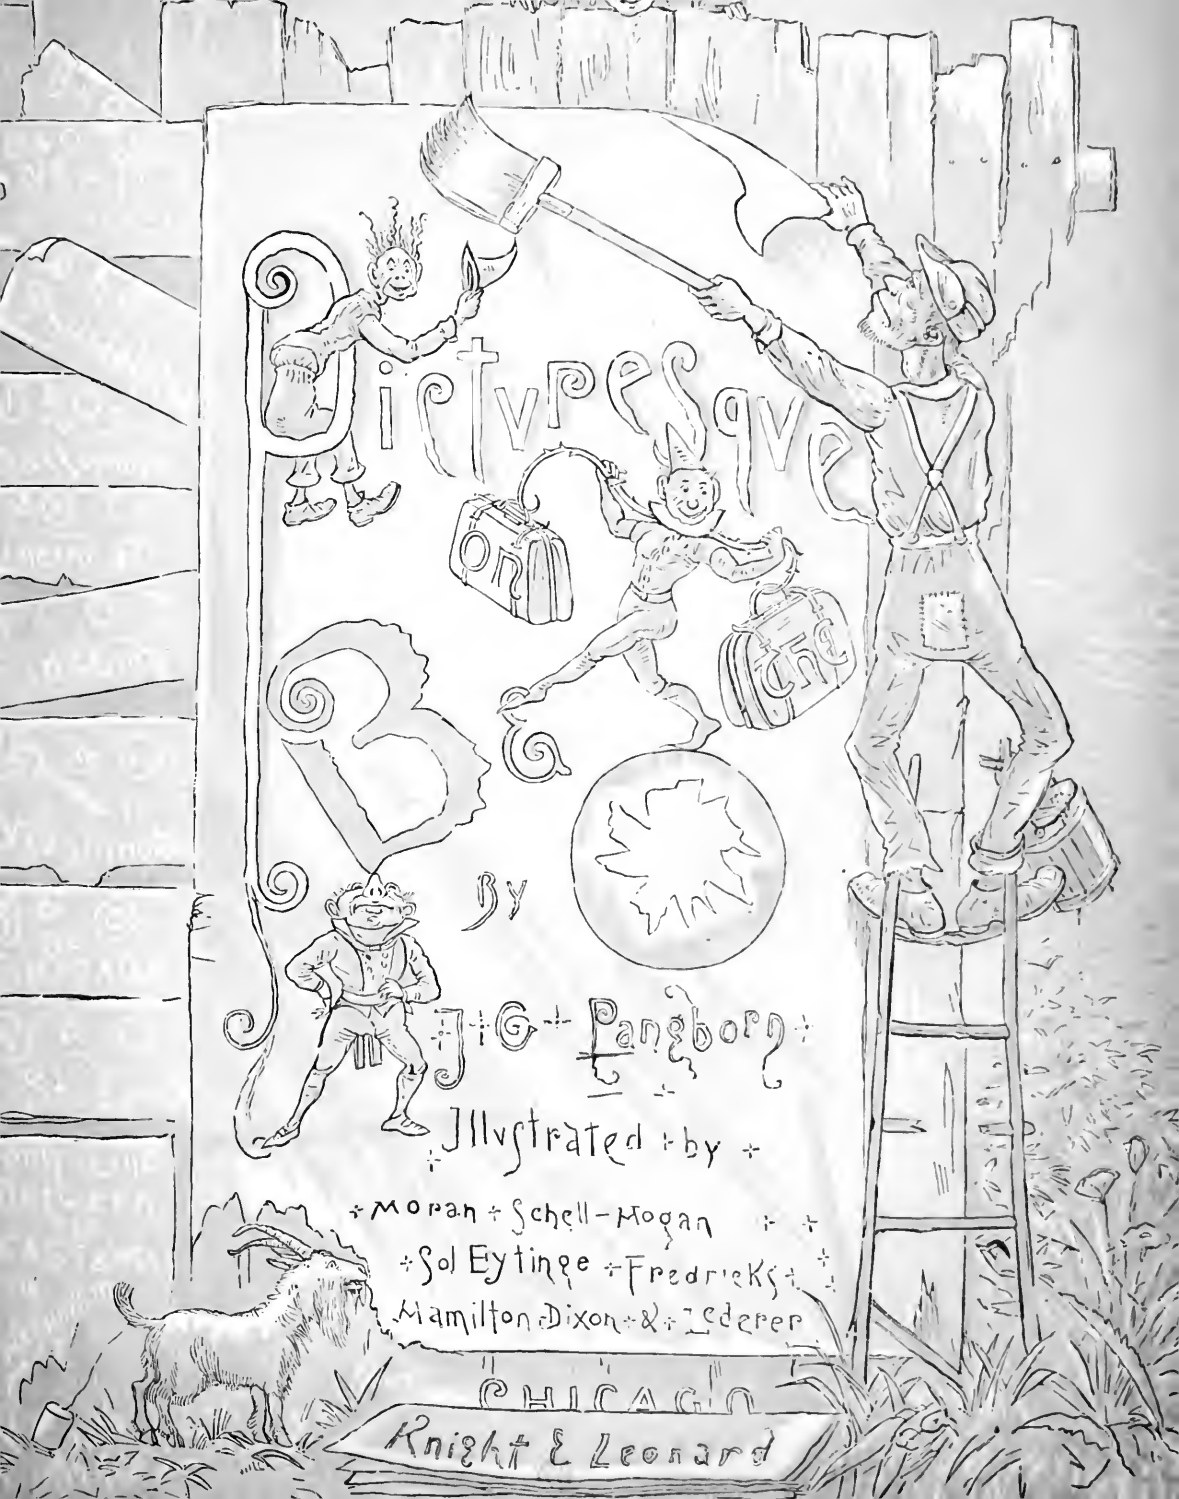 Picturesque
on the
B O
By
J. G. Pangborn
Illustrated by
Moran Schell-Hogan
Sol Eytinge Fredericks
Hamilton Dixon & Lederer
CHICAGO
Knight & Leonard